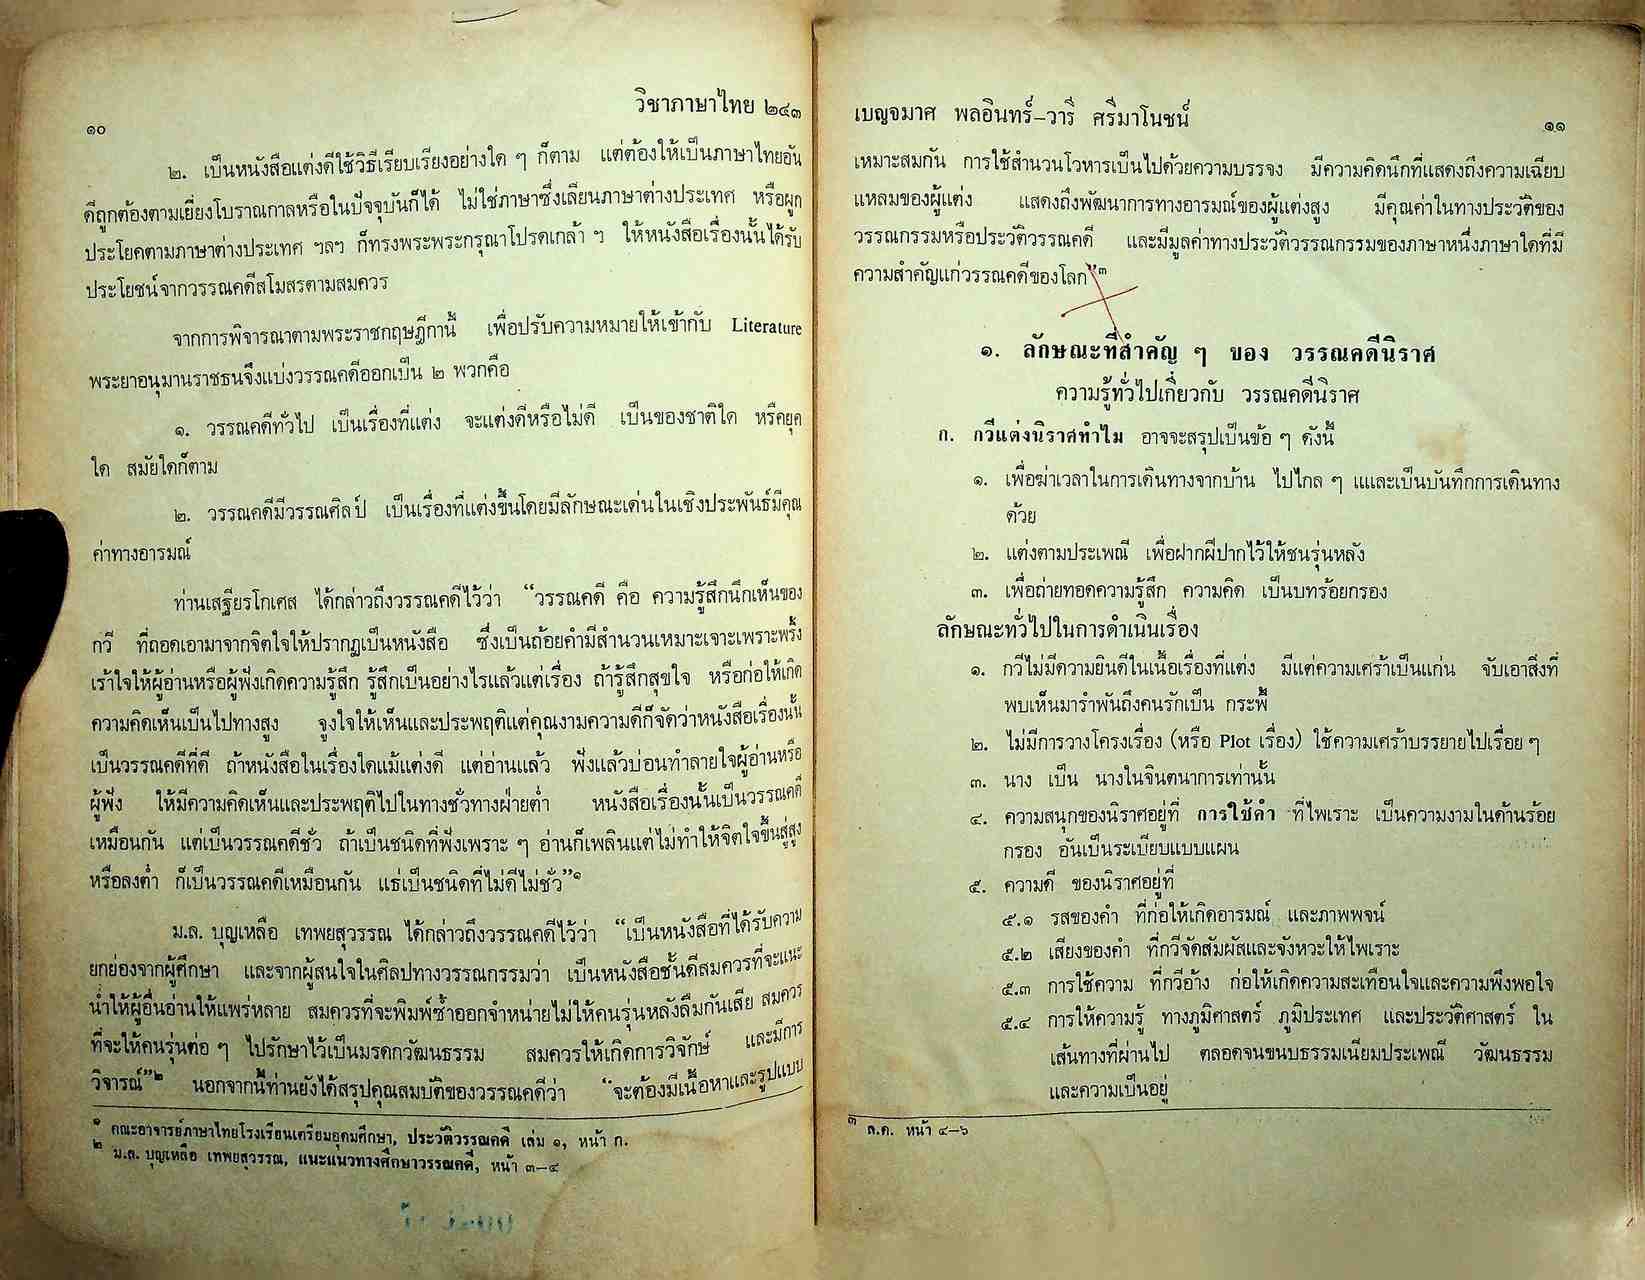 วิชาภาษาไทย ๒๔๓
๑๐
๒. เป็นหนังสือแต่งดีใช้วิธีเรียบเรียงอย่างใด ๆ ก็ตาม แต่ต้องให้เป็นภาษาไทยอัน
ดีถูกต้องตามเยี่ยงโบราณกาลหรือในปัจจุบันก็ได้ ไม่ใช่ภาษาซึ่งเลียนภาษาต่างประเทศ หรือผูก
ประโยคตามภาษาต่างประเทศ ฯลฯ ก็ทรงพระพระกรุณาโปรดเกล้า ฯ ให้หนังสือเรื่องนั้นได้รับ
ประโยชน์จากวรรณคดีสโมสรตามสมควร
จากการพิจารณาตามพระราชกฤษฎีกานี้ เพื่อปรับความหมายให้เข้ากับ Literature
พระยาอนุมานราชธนจึงแบ่งวรรณคดีออกเป็น ๒ พวกคือ
๑. วรรณคดีทั่วไป เป็นเรื่องที่แต่ง จะแต่งดีหรือไม่ดี เป็นของชาติใด หรือยุค
ใด สมัยใดก็ตาม
๒. วรรณคดีมีวรรณศิลป์ เป็นเรื่องที่แต่งขึ้นโดยมีลักษณะเด่นในเชิงประพันธ์มีคุณ
ค่าทางอารมณ์
ท่านเสฐียรโกเศส ได้กล่าวถึงวรรณคดีไว้ว่า “วรรณคดี คือ ความรู้สึกนึกเห็นของ
กวี ที่ถอดเอามาจากจิตใจให้ปรากฏเป็นหนังสือ ซึ่งเป็นถ้อยคำมีสำนวนเหมาะเจาะเพราะพริ้ง
เร้าใจให้ผู้อ่านหรือผู้ฟังเกิดความรู้สึก รู้สึกเป็นอย่างไรแล้วแต่เรื่อง ถ้ารู้สึกสุขใจ หรือก่อให้เกิด
ความคิดเห็นเป็นไปทางสูง จูงใจให้เห็นและประพฤติแต่คุณงามความดีก็จัดว่าหนังสือเรื่องนั้น
เป็นวรรณคดีที่ดี ถ้าหนังสือในเรื่องใดแม้แต่งดี แต่อ่านแล้ว ฟังแล้วบ่อนทำลายใจผู้อ่านหรือ
ผู้ฟัง ให้มีความคิดเห็นและประพฤติไปในทางชั่วทางฝ่ายต่ำ หนังสือเรื่องนั้นเป็นวรรณคดี
เหมือนกัน แต่เป็นวรรณคดีชั่ว ถ้าเป็นชนิดที่ฟังเพราะ ๆ อ่านก็เพลินแต่ไม่ทำให้จิตใจขึ้นสู่สูง
หรือลงต่ำ ก็เป็นวรรณคดีเหมือนกัน แธ่เป็นชนิดที่ไม่ดีไม่ชั่ว”๑
ม.ล. บุญเหลือ เทพยสุวรรณ ได้กล่าวถึงวรรณคดีไว้ว่า “เป็นหนังสือที่ได้รับความ
ยกย่องจากผู้ศึกษา และจากผู้สนใจในศิลปทางวรรณกรรมว่า เป็นหนังสือชั้นดีสมควรที่จะแนะ
นำให้ผู้อื่นอ่านให้แพร่หลาย สมควรที่จะพิมพ์ซ้ำออกจำหน่ายไม่ให้คนรุ่นหลังลืมกันเสีย สมควร
ที่จะให้คนรุ่นต่อ ๆ ไปรักษาไว้เป็นมรดกวัฒนธรรม สมควรให้เกิดการวิจักษ์ และมีการ
วิจารณ์”๒ นอกจากนี้ท่านยังได้สรุปคุณสมบัติของวรรณคดีว่า “จะต้องมีเนื้อหาและรูปแบบ
๑ คณะอาจารย์ภาษาไทยโรงเรียนเตรียมอุดมศึกษา, ประวัติวรรณคดี เล่ม ๑, หน้า ก.
๒ ม.ล. บุญเหลือ เทพยสุวรรณ, แนะแนวทางศึกษาวรรณคดี, หน้า ๓–๔
เบญจมาศ พลอินทร์–วารี ศรีมาโนชน์
๑๑
เหมาะสมกัน การใช้สำนวนโวหารเป็นไปด้วยความบรรจง มีความคิดนึกที่แสดงถึงความเฉียบ
แหลมของผู้แต่ง แสดงถึงพัฒนาการทางอารมณ์ของผู้แต่งสูง มีคุณค่าในทางประวัติของ
วรรณกรรมหรือประวัติวรรณคดี และมีมูลค่าทางประวัติวรรณกรรมของภาษาหนึ่งภาษาใดที่มี
ความสำคัญแก่วรรณคดีของโลก”๓
๑. ลักษณะที่สำคัญ ๆ ของ วรรณคดีนิราศ
ความรู้ทั่วไปเกี่ยวกับ วรรณคดีนิราศ
ก. กวีแต่งนิราศทำไม อาจจะสรุปเป็นข้อ ๆ ดังนี้
๑. เพื่อฆ่าเวลาในการเดินทางจากบ้าน ไปไกล ๆ และเป็นบันทึกการเดินทาง
ด้วย
๒. แต่งตามประเพณี เพื่อฝากฝีปากไว้ให้ชนรุ่นหลัง
๓. เพื่อถ่ายทอดความรู้สึก ความคิด เป็นบทร้อยกรอง
ลักษณะทั่วไปในการดำเนินเรื่อง
๑. กวีไม่มีความยินดีในเนื้อเรื่องที่แต่ง มีแต่ความเศร้าเป็นแก่น จับเอาสิ่งที่
พบเห็นมารำพันถึงคนรักเป็น กระพี้
๒. ไม่มีการวางโครงเรื่อง (หรือ Plot เรื่อง) ใช้ความเศร้าบรรยายไปเรื่อย ๆ
๓. นาง เป็น นางในจินตนาการเท่านั้น
๔. ความสนุกของนิราศอยู่ที่ การใช้คำ ที่ไพเราะ เป็นความงามในด้านร้อย
กรอง อันเป็นระเบียบแบบแผน
๕. ความดี ของนิราศอยู่ที่
๕.๑ รสของคำ ที่ก่อให้เกิดอารมณ์ และภาพพจน์
๕.๒ เสียงของคำ ที่กวีจัดสัมผัสและจังหวะให้ไพเราะ
๕.๓ การใช้ความ ที่กวีอ้าง ก่อให้เกิดความสะเทือนใจและความพึงพอใจ
๕.๔ การให้ความรู้ ทางภูมิศาสตร์ ภูมิประเทศ และประวัติศาสตร์ ใน
เส้นทางที่ผ่านไป ตลอดจนขนบธรรมเนียมประเพณี วัฒนธรรม
และความเป็นอยู่
๓ ล.ค. หน้า ๔–๖